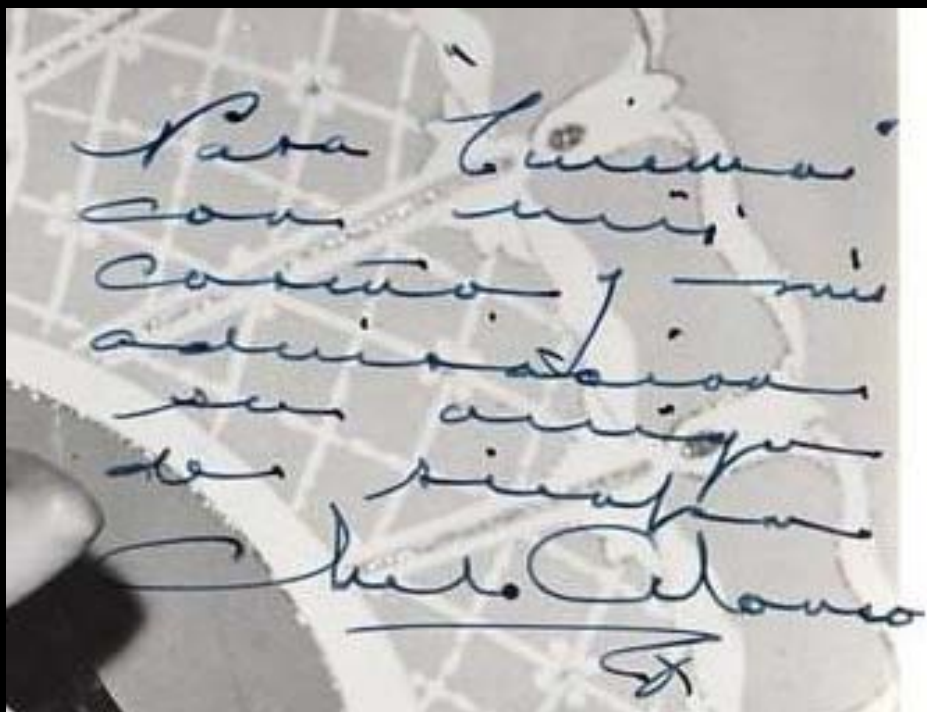 Para "Cinema"
con mi
cariño y mi
admiracion
su amiga
de siempre
Chelo Alonso